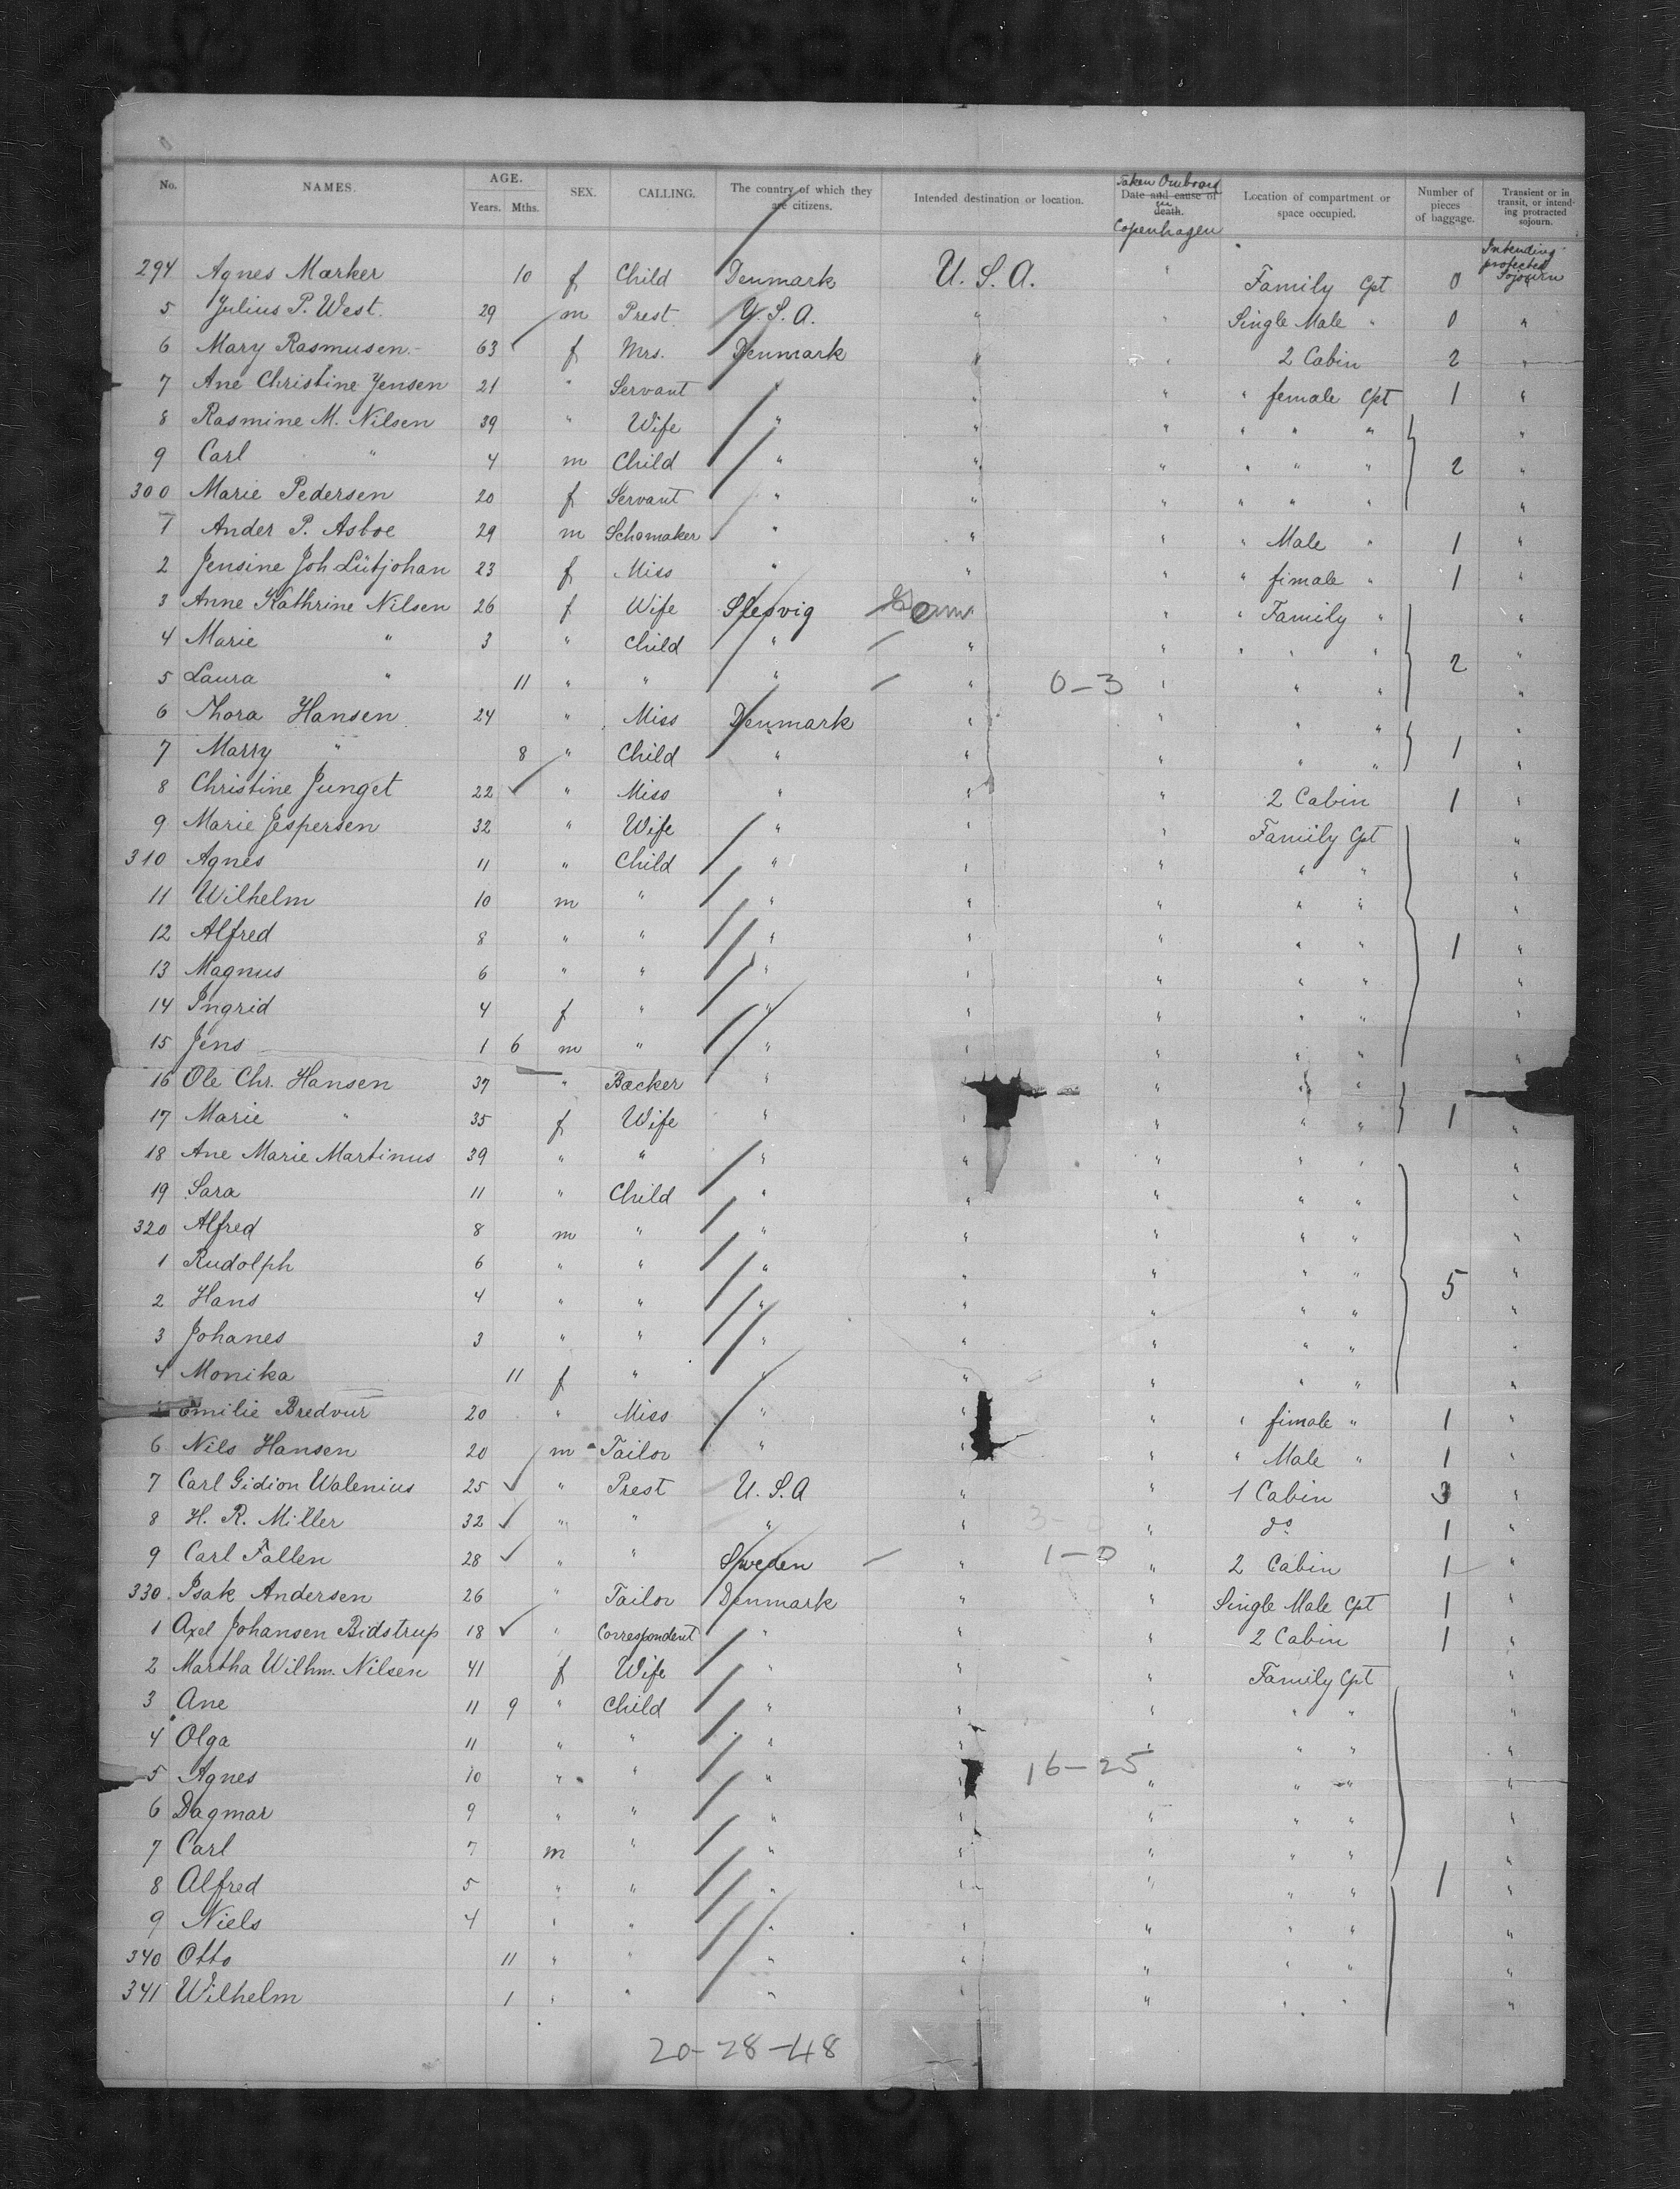 No. NAMES. AGE. Years. Mths. SEX. CALLING. The country of which they are citizens. Intended destination or location. Taken Onboard in Copenhagen Date and cause of death. Location of compartment or space occupied. Number of pieces of baggage. Transient or in transit, or intending protracted sojourn.
294 Agnes Mærker 10 f Child Denmark U. S. A. " Family Cpt 0 Intending protected Sojourn
5 Julius P. West. 29 m Prest U. S. A. " " Single Male " 0 "
6 Mary Rasmusen 63 ✓ f Mrs. Denmark " " 2 Cabin 2 "
7 Ane Christine Jensen 21 " Servant " " " female Cpt 1 "
8 Rasmine M. Nilsen 39 " Wife " " " " " " "
9 Carl " 4 m Child " " " " " " 2 "
300 Marie Pedersen 20 f Servant " " " " " " "
1 Ander P. Asboe 29 m Schomaker " " " " Male " 1 "
2 Jensine Joh Lütjohan 23 f Miss " " " " fimale " 1 "
3 Anne Kathrine Nilsen 26 f Wife Slesvig Germ " " Family " "
4 Marie " 3 " Child " " " " " " 2 "
5 Laura " 11 " " " " 0-3 " " " "
6 Thora Hansen 24 " Miss Denmark " " " " "
7 Marry " 8 " Child " " " " " 1 "
8 Christine Junget 22 ✓ " Miss " " " 2 Cabin 1 "
9 Marie Jespersen 32 " Wife " " " Family Cpt "
310 Agnes 11 " Child " " " " " "
11 Wilhelm 10 m " " " " " " "
12 Alfred 8 " " " " " " " 1 "
13 Magnus 6 " " " " " " " "
14 Ingrid 4 f " " " " " " "
15 Jens 1 6 m " " " " " " "
16 Ole Chr. Hansen 37 " Backer " " " "
17 Marie " 35 f Wife " " " " " 1 "
18 Ane Marie Martinus 39 " " " " " " " "
19 Sara 11 " Child " " " " " "
320 Alfred 8 m " " " " " " "
1 Rudolph 6 " " " " " " " 5 "
2 Hans 4 " " " " " " " "
3 Johanes 3 " " " " " " " "
4 Monika 11 f " " " " " " "
Emilie Bredvur 20 " Miss " " " " fimale " 1 "
6 Nils Hansen 20 m Tailor " " " Male " 1 "
7 Carl Gidion Walenius 25 ✓ " Prest U. S. A " " 1 Cabin 3 "
8 H. R. Miller 32 ✓ " " " " 3-0 " do 1 "
9 Carl Fallen 28 ✓ " " Sweden " 1-0 " 2 Cabin 1 "
330 Isak Andersen 26 " Tailor Denmark " " Single Male Cpt 1 "
1 Axel Johansen Bidstrup 18 ✓ " Correspondent " " " 2 Cabin 1 "
2 Martha Wilhm. Nilsen 41 f Wife " " " Family Cpt "
3 Ane 11 9 " Child " " " " " "
4 Olga 11 " " " " " " " "
5 Agnes 10 " " " " 16-25 " " " "
6 Dagmar 9 " " " " " " " "
7 Carl 7 m " " " " " " "
8 Alfred 5 " " " " " " " 1 "
9 Niels 4 " " " " " " " "
340 Otto 11 " " " " " " " "
341 Wilhelm 1 " " " " " " " "
20-28-48